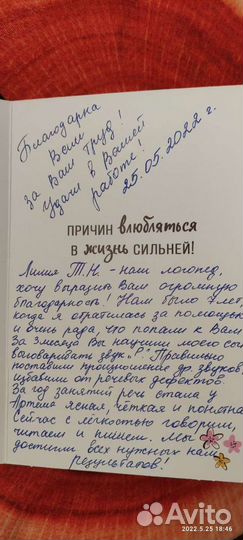 Благодарна
Вам
за Ваш труд!
Удачи в Вашей
работе!
25.05.2022 г.
ПРИЧИН влюбляться
в жизнь СИЛЬНЕЙ!
Лилия Т.Н. - наш логопед,
хочу выразить Вам огромную
благодарность! Нам было 7 лет,
когда я обратилась за помощью
и очень рада, что попали к Вам
За 3 месяца Вы научили моего сына
выговаривать звук „Р". Правильно
поставили произношение др. звуков,
избавили от речевых дефектов.
За год занятий речь стала у
Артёма ясная, чёткая и понятная
Сейчас с лёгкостью говорим,
читаем и пишем. Мы
достигли всех нужных нам
результатов!
2022.5.25 18:46
Avito